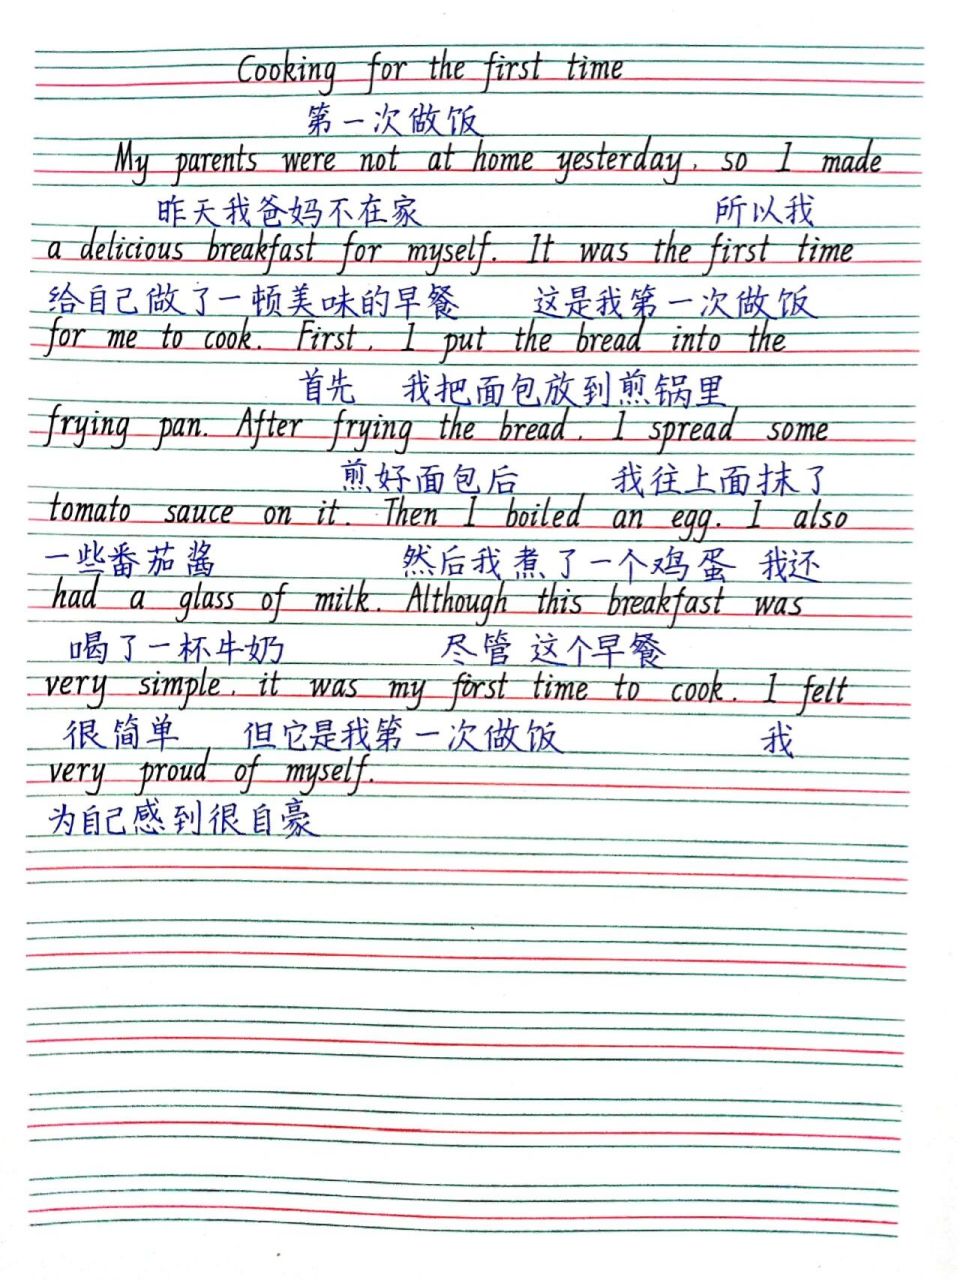 Cooking for the first time
第一次做饭
My parents were not at home yesterday, so I made
昨天我爸妈不在家 所以我
a delicious breakfast for myself. It was the first time
给自己做了一顿美味的早餐 这是我第一次做饭
for me to cook. First, I put the bread into the
首先 我把面包放到煎锅里
frying pan. After frying the bread, I spread some
煎好面包后 我往上面抹了
tomato sauce on it. Then I boiled an egg. I also
一些番茄酱 然后我煮了一个鸡蛋 我还
had a glass of milk. Although this breakfast was
喝了一杯牛奶 尽管这个早餐
very simple, it was my first time to cook. I felt
很简单 但它是我第一次做饭 我
very proud of myself.
为自己感到很自豪